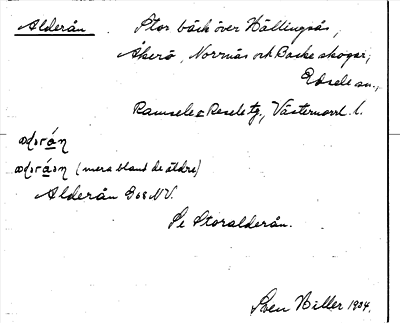 Alderån Stor bäck över Hällingsås,
Åkerö, Norrnäs och Backe skogar;
Edsele sn.,
Ramsele o. Resele tg., Västernorrl. l.
(mera bland de äldre)
Alderån 868 NV.
Se Storalderån.
Sven Hiller 1904.